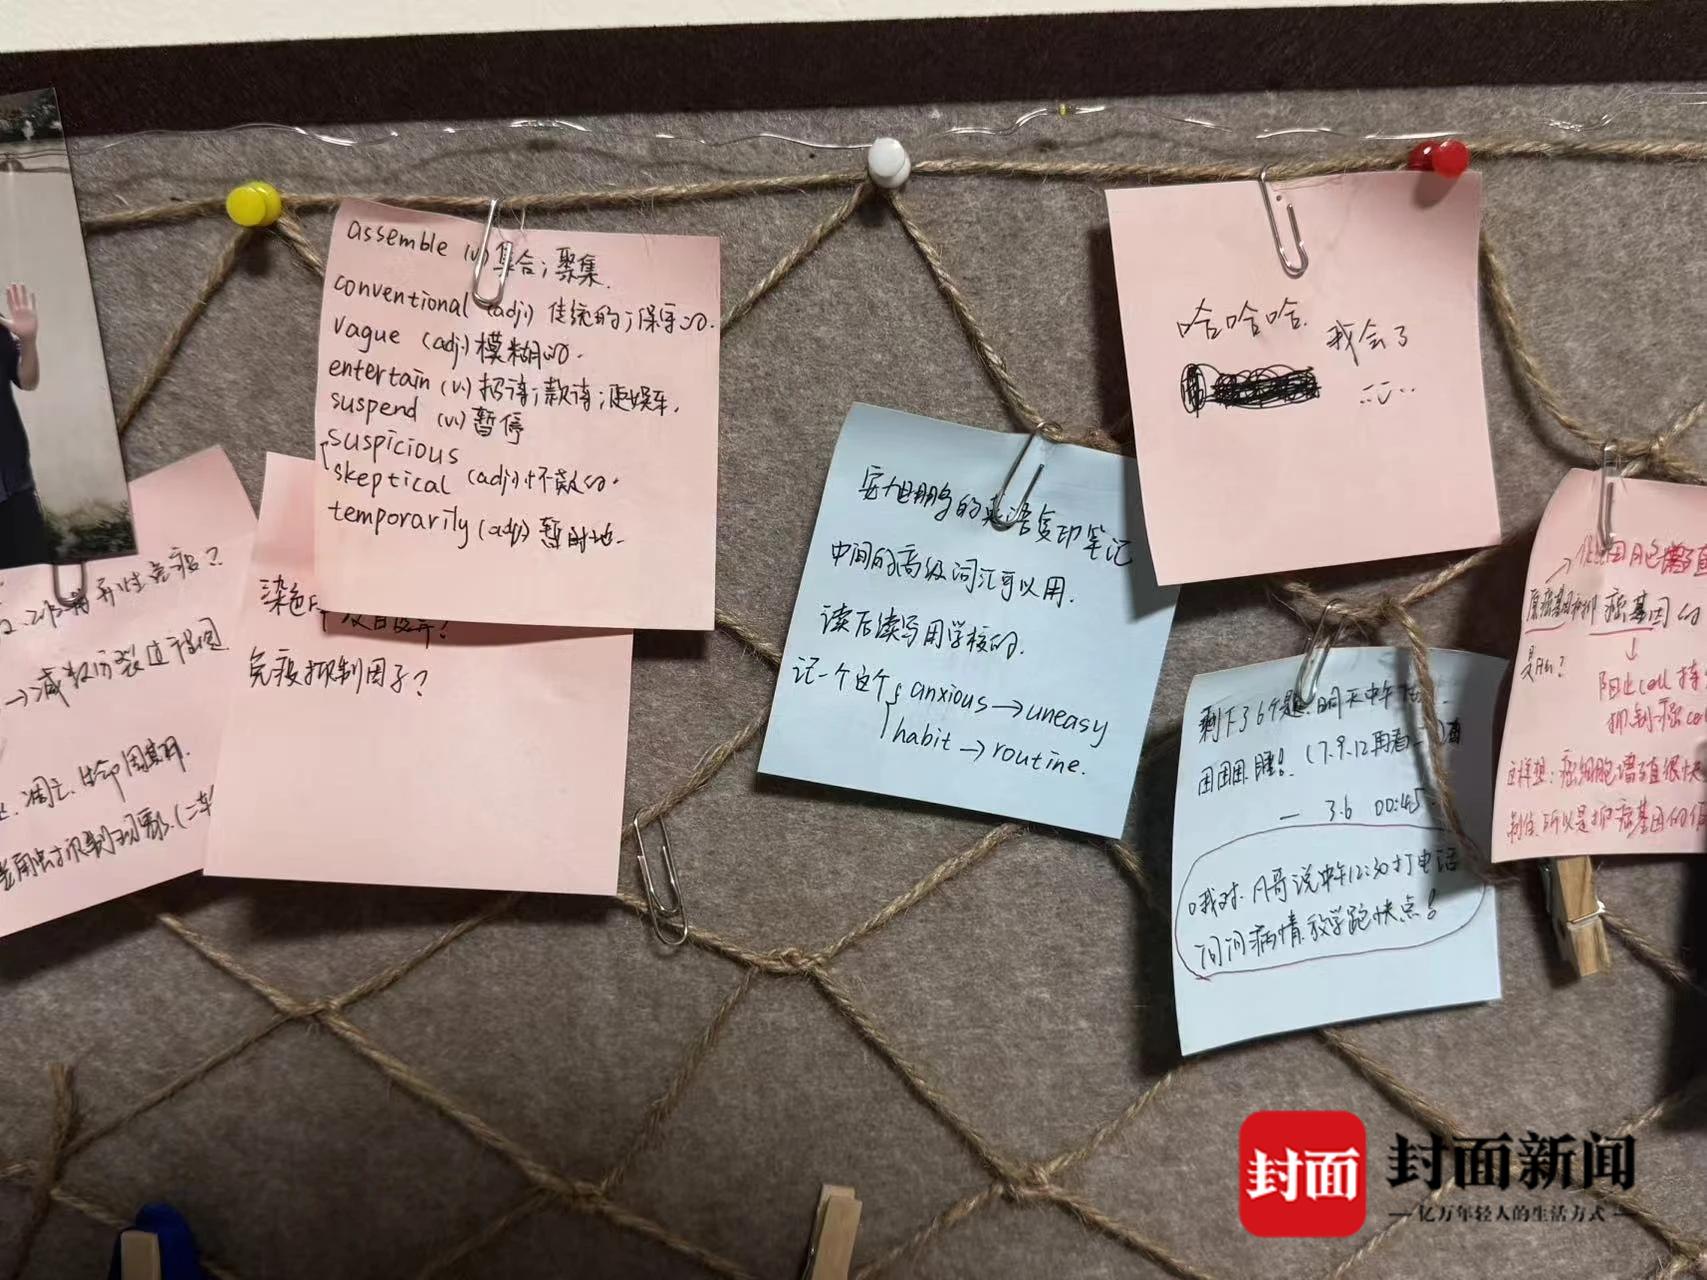 assemble (v.) 集合；聚集.
conventional (adj.) 传统的；保守的.
vague (adj.) 模糊的.
entertain (v.) 招待；款待；使娱乐.
suspend (v.) 暂停
suspicious
skeptical (adj.) 怀疑的.
temporarily (adv.) 暂时地.
异性免疫？
→减数分裂过程图
染色
免疫抑制因子？
的英语复印笔记
中间的高级词汇可以用.
读后续写用学校的.
记一个这个 anxious → uneasy
habit → routine.
哈哈哈. 我会了
剩下了6个题.明天中午
困困困.睡！(7.9.12再看
— 3.6 00:45.
哦对.哥说中午12:30打电话
问问病情.放学跑快点！
原癌基因和抑癌基因的
是啥？
阻止cell
抑制
癌细胞增殖很快
所以是抑癌基因的
封面
封面新闻
亿万年轻人的生活方式